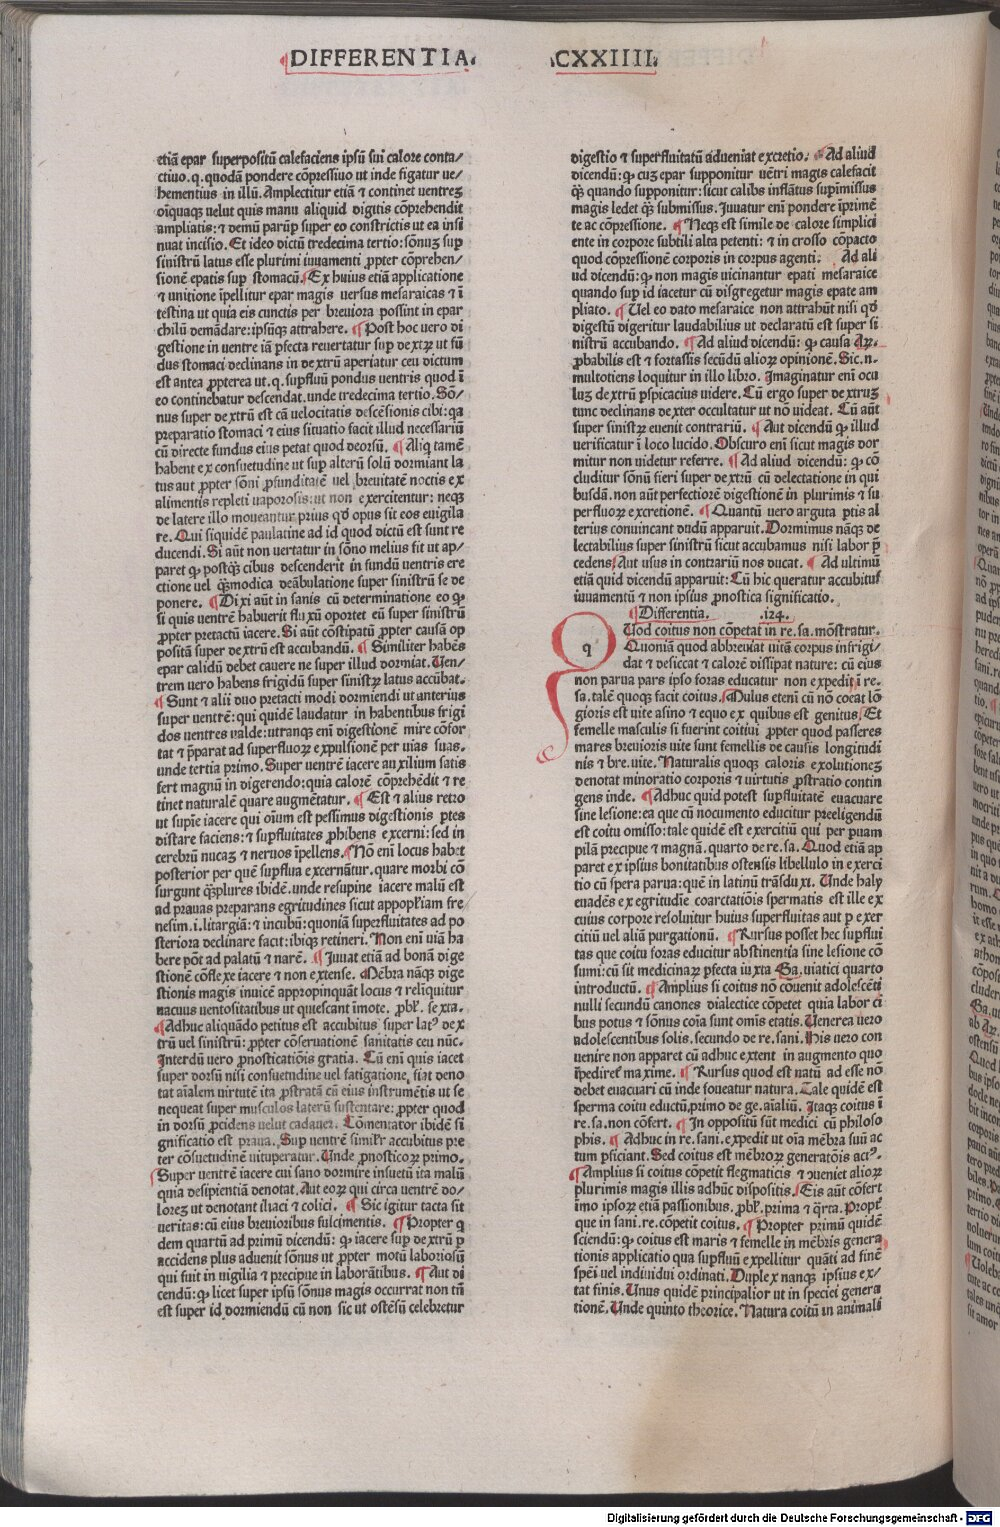 DIFFERENTIA CXXIIII.
etiā epar superpositū calefaciens ipsū sui calore conta/
ctiuo.q.quodā pondere cōpressiuo ut inde figatur ue/
hementius in illū.Amplectitur etiā ⁊ continet uentreʒ
oīquaqʒ uelut quis manu aliquid digitis cōprehendit
ampliatis:⁊ demū paruꝑ super eo constrictis ut ea insi
nuat incisio.Et ideo dictū tredecima tertio:sōnuʒ suꝑ
sinistrū latus esse plurimi iuuamenti ꝓpter cōprehen/
sionē epatis suꝑ stomacū.¶Ex huius etiā applicatione
⁊ unitione īpellitur epar magis uersus mesaraicas ⁊ ī
testina ut quia eis cunctis per breuiora possint in epar
chilū demādare:ipsūqʒ attrahere. ¶Post hoc uero di
gestione in uentre iā ꝑfecta reuertatur suꝑ dextrꝝ ut fū
dus stomaci declinans in dextrū aperiatur ceu dictum
est antea ꝓpterea ut.q.supfluū pondus uentris quod ī
eo continebatur descendat.unde tredecima tertio.Sō/
nus super dextrū est cā uelocitatis descēsionis cibi:qa
preparatio stomaci ⁊ eius situatio facit illud necessariū
cū directe fundus eius petat quod deorsū. ¶Aliq tamē
habent ex consuetudine ut suꝑ alterū solū dormiant la
tus aut ꝓpter sōni ꝓfunditatē uel breuitatē noctis ex
alimentis repleti uaporosis:ut non exercitentur:neqʒ
de latere illo moueantur prius qď opus sit eos euigila
re.Qui siquidē paulatine ad id quod dictū est sunt re
ducendi.Si aūt non uertatur in sōno melius fit ut ap/
paret ꝙ postqʒ cibus descenderit in fundū uentris ere
ctione uel qʒmodica deābulatione super sinistrū se de
ponere. ¶Dixi aūt in sanis cū determinatione eo ꝙ
si quis uentrē habuerit fluxū oportet eū super sinistrū
ꝓpter pretactū iacere.Si aūt cōstipatū ꝓpter causā op
positā super dextrū est accubandū. ¶Similiter habēs
epar calidū debet cauere ne super illud dormiat.Uen/
trem uero habens frigidū super sinistꝝ latus accūbat.
¶Sunt ⁊ alii duo pretacti modi dormiendi ut anterius
super uentrē:qui quidē laudatur in habentibus frigi
dos uentres ualde:utranqʒ eni digestionē mire cōfor
tat ⁊ ꝓparat ad superfluoꝝ expulsionē per uias suas.
unde tertia primo.Super uentrē iacere auxilium satis
fert magnū in digerendo:quia calorē cōprehēdit ⁊ re
tinet naturalē quare augmētatur. ¶Est ⁊ alius retro
ut supīe iacere qui oīum est pessimus digestionis ꝑtes
distare faciens:⁊ supfluitates ꝓhibens excerni:sed in
cerebrū nucaʒ ⁊ neruos īpellens.¶Nō eni locus habet
posterior per quē supflua excernātur.quare morbi cō
surgunt qʒplures ibidē.unde resupine iacere malū est
ad prauas preparans egritudines sicut appoplxiam fre
nesim.i.litargiā:⁊ incubū:quoniā superfluitates ad po
steriora declinare facit:ibiqʒ retineri.Non eni uiā ha
bere pōt ad palatū ⁊ narē. ¶Iuuat etiā ad bonā dige
stionē cōflexe iacere ⁊ non extense. Mēbra nāqʒ dige
stionis magis inuicē appropinquāt locus ⁊ reliquitur
uacuus uentositatibus ut quiescant īmote. ꝓbl̄. sexta.
¶Adhuc aliquādo petitus est accubitus super latꝰ dex
trū uel sinistrū:ꝓpter cōseruationē sanitatis ceu nūc.
Interdū uero ꝓnosticatiōis gratia. Cū eni quis iacet
super dorsū nisi consuetudine uel fatigatione fiat deno
tat aīalem uirtutē ita ꝓstratā cū eius instrumētis ut se
nequeat super musculos laterū sustentare:ꝓpter quod
in dorsū ꝓcidens uelut cadauer. Cōmentator ibidē si
gnificatio est praua. Suꝑ uentrē similr accubitus pre
ter cōsuetudinē uituperatur.Unde ꝓnosticoꝝ primo.
Super uentrē iacere cui sano dormire insuetū ita malū
quia desipientiā denotat.Aut eoꝝ qui circa uentrē do/
loreʒ ut denotant iliaci ⁊ colici. ¶Sic igitur tacta sit
ueritas:cū eius breuioribus fulcimentis. ¶Propter q
dem quartū ad primū dicendū: ꝙ iacere suꝑ dextrū ꝑ
accidens plus aduenit sōnus ut ꝓpter motū laboriosū
qui fuit in uigilia ⁊ precipue in laborātibus. ¶Aut di
cendū:ꝙ licet super ipsū sōnus magis occurrat non tn̄
est super id dormiendū cū non sic ut ostēsū celebretur
digestio ⁊ superfluitatū adueniat excretio. ¶Ad aliud
dicendū:ꝙ cuʒ epar supponitur uētri magis calefacit
qʒ quando supponitur:sicut calibs inflātus supīmissus
magis ledet qʒ submissus.Iuuatur eni pondere īprimē
te ac cōpressione. ¶Neqʒ est simile de calore simplici
ente in corpore subtili alta petenti: ⁊ in crosso cōpacto
quod cōpressionē corporis in corpus agenti. Ad ali
ud dicendū:ꝙ non magis uicinantur epati mesaraice
quando suꝑ id iacetur cū disgregetur magis epate am
pliato. ¶Uel eo dato mesaraice non attrahūt nisi qď
digestū digeritur laudabilius ut declaratū est super si
nistrū accubando. ¶Ad aliud dicendū: ꝙ causa Aꝝ.
ꝓbabilis est ⁊ fortassis secūdū alioꝝ opinionē. Sic.n.
multotiens loquitur in illo libro. Imaginatur eni ocu
luʒ dextrū ꝑspicacius uidere. Cū ergo super dextruʒ
tunc declinans dexter occultatur ut nō uideat. Cū aūt
super sinistꝝ euenit contrariū. ¶Aut dicendū ꝙ illud
uerificatur ī loco lucido. Obscuro eni sicut magis dor
mitur non uidetur referre. ¶Ad aliud dicendū: ꝙ cō
cluditur sōnū fieri super dextrū cū delectatione in qui
busdā.non aūt perfectiorē digestionē in plurimis ⁊ su
perfluoꝝ excretionē. ¶Quantū uero arguta ꝑtis al
terius conuincant dudū apparuit.Dormimus nāqʒ de
lectabilius super sinistrū sicut accubamus nisi labor ꝑ
cedens.Aut usus in contrariū nos ducat. ¶Ad ultimū
etiā quid dicendū apparuit: Cū hic queratur accubitus
iuuamentū ⁊ non ipsius ꝓnostica significatio.
¶Differentia. .124.
q Uod coitus non cōpetat in re.sa.mōstratur.
Quoniā quod abbreuiat uitā corpus infrigi/
dat ⁊ desiccat ⁊ calorē dissipat nature: cū eius
non parua pars ipso foras educatur non expedit ī re.
sa.talē quoqʒ facit coitus.¶Mulus eteni cū nō coeat lō
gioris est uite asino ⁊ equo ex quibus est genitus.Et
femelle masculis si fuerint coitiui ꝓpter quod passeres
mares breuioris uite sunt femellis de causis longitudi
nis ⁊ bre.uite. Naturalis quoqʒ caloris exolutioneʒ
denotat minoratio corporis ⁊ uirtutis ꝓstratio contin
gens inde. ¶Adhuc quid potest supfluitatē euacuare
sine lesione:ea que cū nocumento educitur preeligendū
est coitu omisso:tale quidē est exercitiū qui per puam
pilā precipue ⁊ magnā.quarto de re.sa. Quod etiā ap
paret ex ipsius bonitatibus ostensis libellulo in exerci
tio cū spera parua:quē in latinū trāsduxi. Unde haly
euadēs ex egritudīe coarctatiōis spermatis est ille ex
cuius corpore resoluitur huius superfluitas aut ꝑ exer
citiū uel aliā purgationū. ¶Rursus posset hec supflui
tas que coitu foras educitur abstinentia sine lesione cō
sumi:cū sit medicinaꝝ ꝑfecta iuxta Ga.uiatici quarto
introductū. ¶Amplius si coitus nō cōuenit adolescēti
nulli secundū canones dialectice cōpetet quia labor ci
bus potus ⁊ sōnus coīa sunt omīs etatis.Uenerea uero
adolescentibus solis.secundo de re.sani.His uero con
uenire non apparet cū adhuc extent in augmento quo
īpedires maxime. ¶Rursus quod est natū ad esse nō
debet euacuari cū inde foueatur natura. Tale quidē est
sperma coitu eductū.primo de ge.aīaliū. Itaqʒ coitus ī
re.sa.non cōfert. ¶In oppositū sūt medici cū philoso
phis. ¶Adhuc in re.sani.expedit ut oīa mēbra suū ac
tum ꝑficiant.Sed coitus est mēbroꝝ generatōis actꝰ.
¶Amplius si coitus cōpetit flegmaticis ⁊ ꝯueniet alioꝝ
plurimis magis illis adhuc dispositis.¶Eis aūt cōfert
imo ipsoꝝ etiā passionibus.ꝓbl̄.prima ⁊ q̄rta. Propt̄
que in sani.re.cōpetit coitus. ¶Propter primū quidē
sciendū:ꝙ coitus est maris ⁊ femelle in mēbris genera
tionis applicatio qua supfluū expellitur quāti ad finē
spēi uel indiuidui ordinati.Duplex nanqʒ ipsius ex/
tat finis.Unus quidē principalior ut in speciei genera
tionē.Unde quinto theorice.Natura coitū in animali